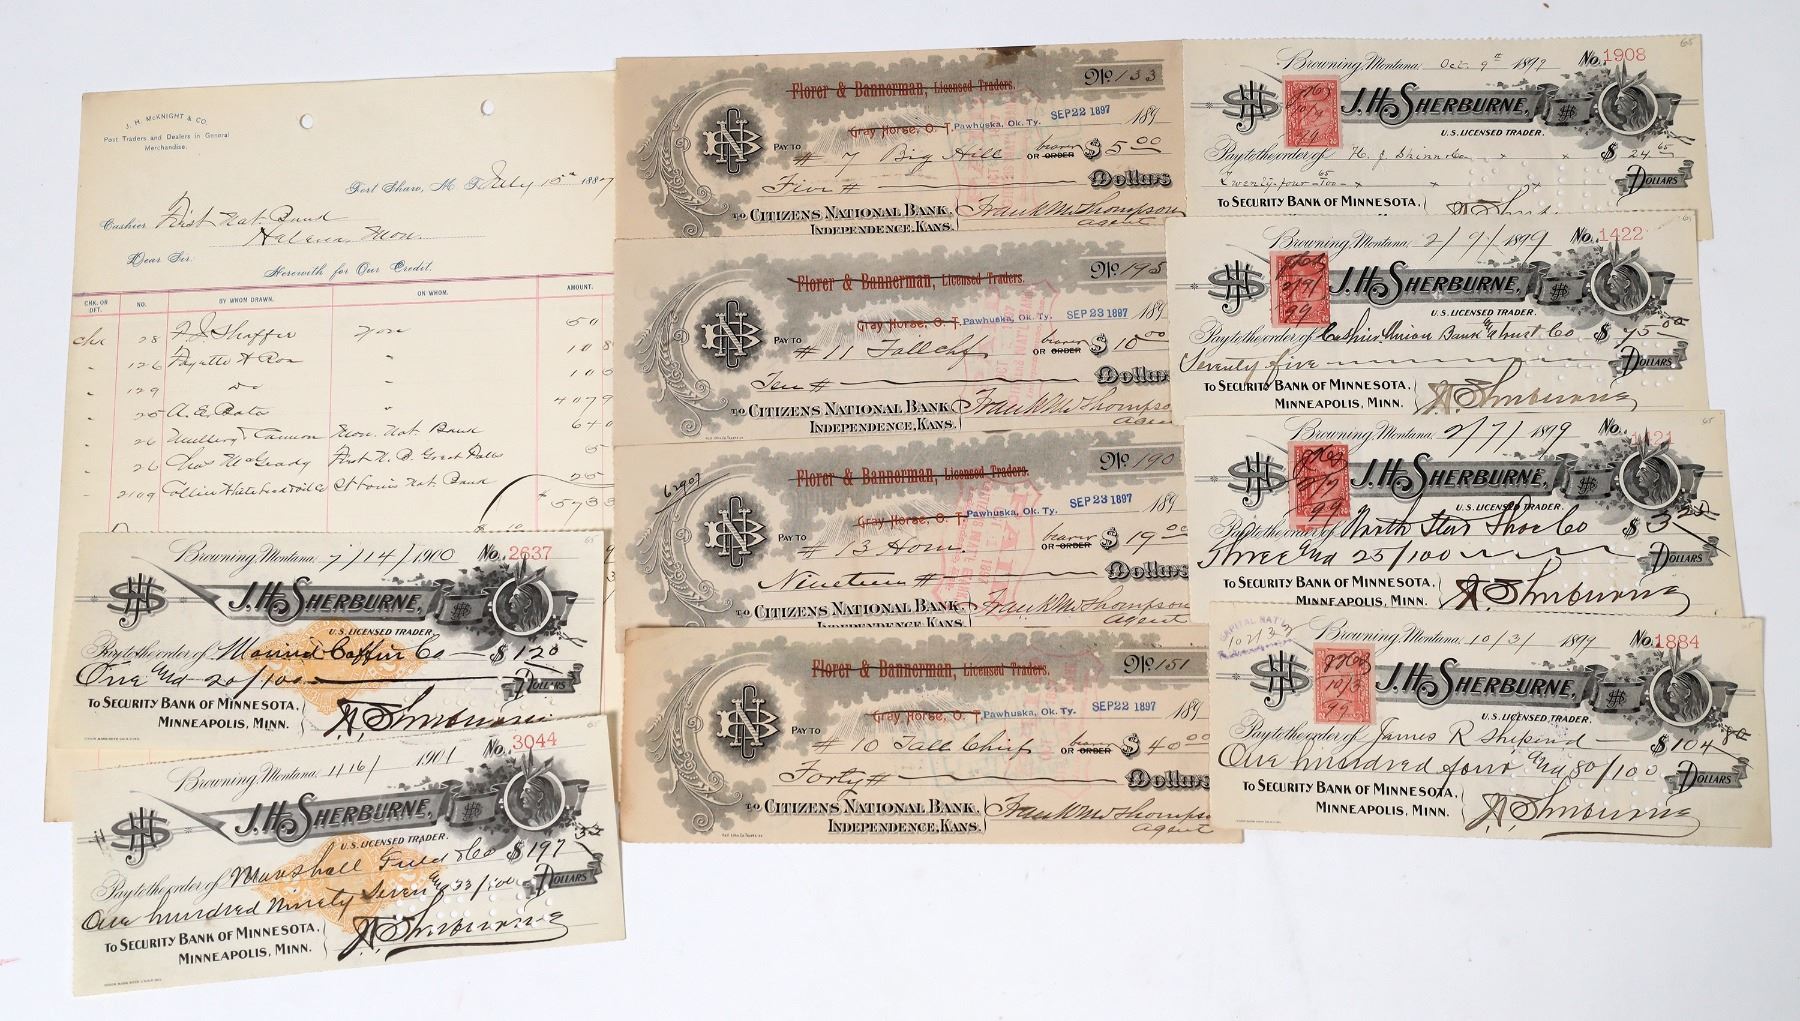 J. H. McKNIGHT & CO.
Post Traders and Dealers in General
Merchandise.
Fort Shaw, M. T. July 15th 1887
Cashier First Nat. Bank
Helena Mon.
Dear Sir:
Herewith for Our Credit.
CHK. OR DFT. NO. BY WHOM DRAWN. ON WHOM. AMOUNT.
chk 28 you 50
" 126 " 108
" 129 do " 100
" 25 A. E. " 4079
" 26 Mon. Nat. Bank 640
" 26 Chas McGrady First N. B. Great Falls 5
" 2109 St Louis Nat. Bank 25
$ 5733
Browning, Montana, 7/14/1900 No. 2637
J. H. SHERBURNE,
U.S. LICENSED TRADER.
Pay to the order of Coffin Co $ 1 20
One and 20/100 DOLLARS
TO SECURITY BANK OF MINNESOTA,
MINNEAPOLIS, MINN. J H Sherburne
Browning, Montana, 11/6/1901 No. 3044
J. H. SHERBURNE,
U.S. LICENSED TRADER.
Pay to the order of Marshall Field & Co $ 197 33
One hundred ninety seven and 33/100 DOLLARS
TO SECURITY BANK OF MINNESOTA,
MINNEAPOLIS, MINN. J H Sherburne
Florer & Bannerman, Licensed Traders. No. 133
Gray Horse, O. T. Pawhuska, Ok. Ty. SEP 22 1897 189
PAY TO # 7 Big Hill OR bearer ORDER $ 5 00
Five # Dollars
TO CITIZENS NATIONAL BANK, Frank M Thompson
INDEPENDENCE, KANS. agent
Florer & Bannerman, Licensed Traders. No. 195
Gray Horse, O. T. Pawhuska, Ok. Ty. SEP 23 1897 189
PAY TO # 11 Tall Chf OR bearer ORDER $ 10 00
Ten # Dollars
TO CITIZENS NATIONAL BANK, Frank M Thompson
INDEPENDENCE, KANS. agent
Florer & Bannerman, Licensed Traders. No. 190
62907
Gray Horse, O. T. Pawhuska, Ok. Ty. SEP 23 1897 189
PAY TO # 13 OR bearer ORDER $ 19 00
Nineteen # Dollars
TO CITIZENS NATIONAL BANK, Frank M Thompson
INDEPENDENCE, KANS. agent
Florer & Bannerman, Licensed Traders. No. 151
Gray Horse, O. T. Pawhuska, Ok. Ty. SEP 22 1897 189
PAY TO # 10 Tall Chief OR bearer ORDER $ 40 00
Forty # Dollars
TO CITIZENS NATIONAL BANK, Frank M Thompson
INDEPENDENCE, KANS. agent
65
Browning, Montana, Oct. 9th 1899 No. 1908
J. H. SHERBURNE,
U.S. LICENSED TRADER.
Pay to the order of H. J. Skinner Co $ 24 65
Twenty-four 65/100 DOLLARS
TO SECURITY BANK OF MINNESOTA,
Browning, Montana, 2/9/1899 No. 1422
J. H. SHERBURNE,
U.S. LICENSED TRADER.
Pay to the order of Cashier Union Bank & Trust Co $ 75 00
Seventy five DOLLARS
TO SECURITY BANK OF MINNESOTA,
MINNEAPOLIS, MINN. J H Sherburne
65
Browning, Montana, 2/7/1899 No. 1421
J. H. SHERBURNE,
U.S. LICENSED TRADER.
Pay to the order of North Star Shoe Co $ 3 25
Three and 25/100 DOLLARS
TO SECURITY BANK OF MINNESOTA,
MINNEAPOLIS, MINN. J H Sherburne
Browning, Montana, 10/3/1899 No. 1884
J. H. SHERBURNE,
U.S. LICENSED TRADER.
Pay to the order of James R $ 104 80
One hundred four and 80/100 DOLLARS
TO SECURITY BANK OF MINNESOTA,
MINNEAPOLIS, MINN. J H Sherburne